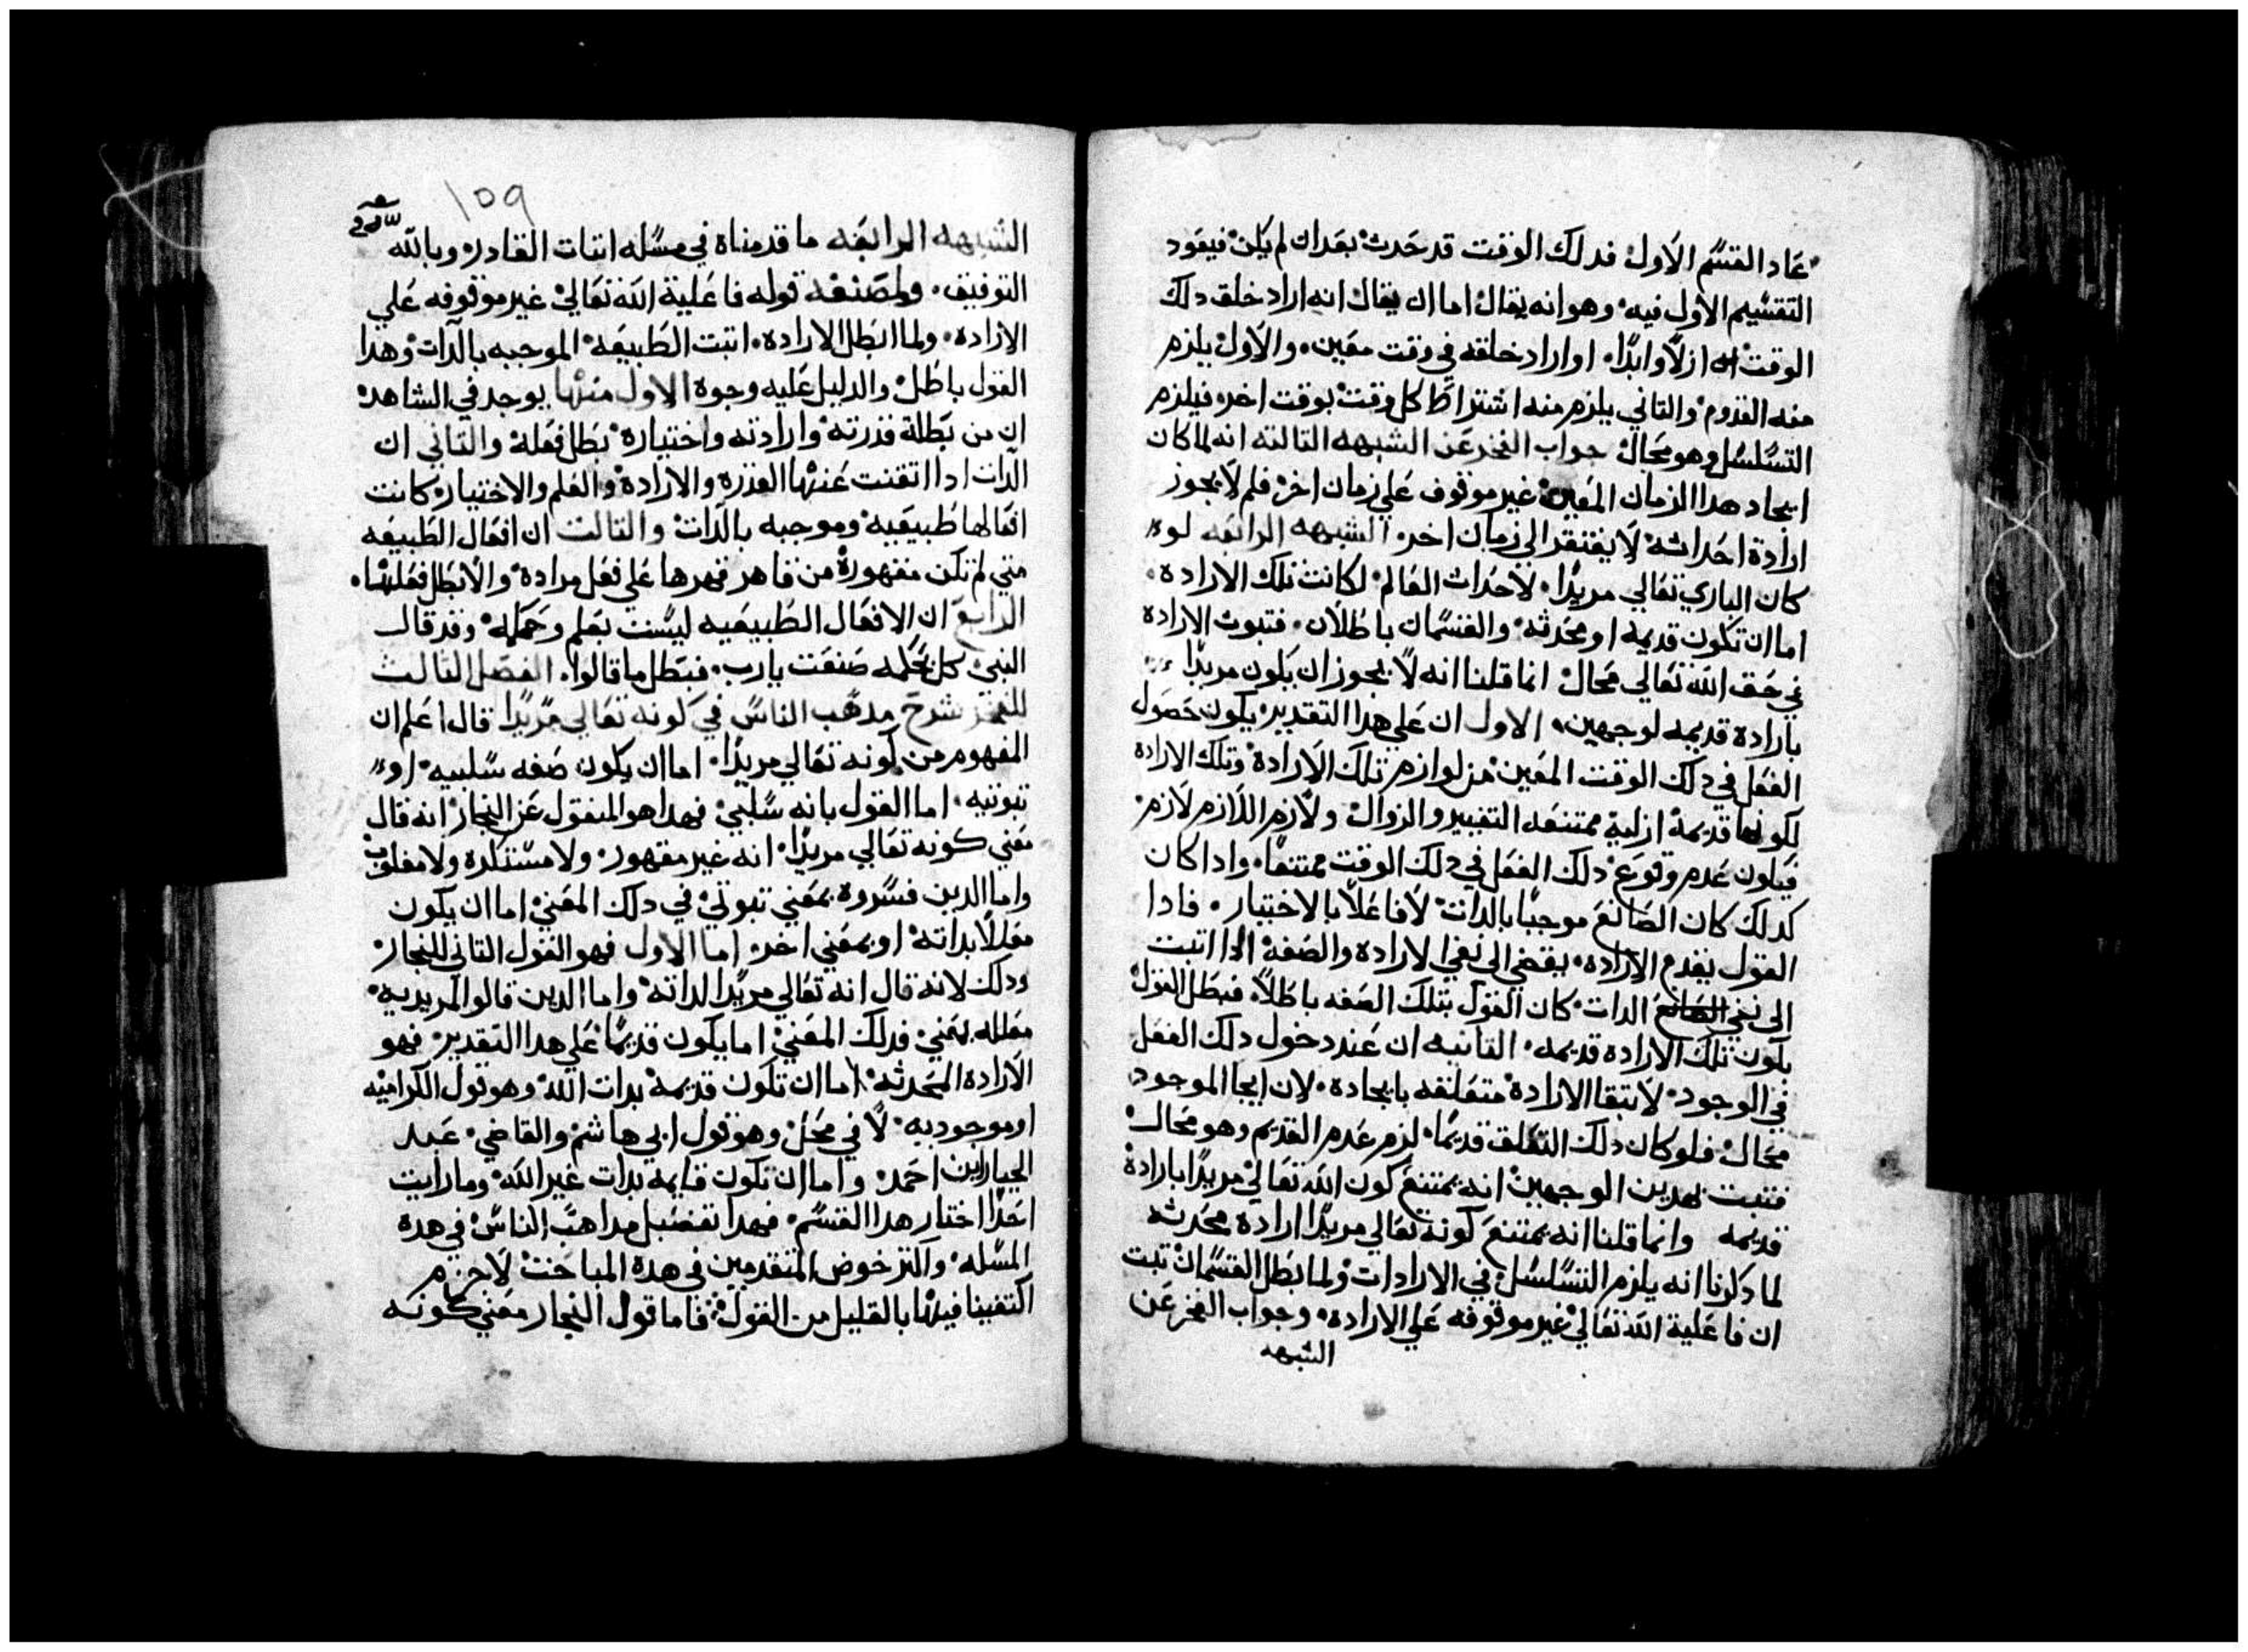 عاد القسم الاول فدلك الوقت قد حدث بعد ان لم يكن فيعود
التقسيم الاول فيه وهو انه يقال اما ان يقال انه اراد خلق دلك
الوقت ازلا وابدا او اراد خلقه في وقت معين والاول يلزم
منه القدوم والتاني يلزم منه اشتراط كل وقت بوقت اخر فيلزم
التسلسل وهو محال جواب الفخر عن الشبهه التالته انه لما كان
ايجاد هدا الزمان المعين غير موقوف علي زمان اخر فلم لا يجوز
ارادة احداثه لا يفتقر الي زمان اخر الشبهه الرابعه لو
كان الباري تعالي مريدا لاحداث العالم لكانت تلك الاراده
اما ان تكون قديمه او محدثه والقسمان باطلان فتبوت الاراده
في حق الله تعالي محال انما قلنا انه لا يجوز ان يكون مريدا
بارادة قديمه لوجهين الاول ان علي هدا التقدير يكون حصول
الفعل في دلك الوقت المعين من لوازم تلك الارادة وتلك الاراده
لكونها قديمة ازلية ممتنعه التغيير والزوال ولازم اللازم لازم
فيكون عدم وقوع دلك الفعل في دلك الوقت ممتنعا وادا كان
كدلك كان الصانع موجبا بالدات لا فاعلا بالاختيار فادا
القول بقدم الاراده يفضي الي نفي الاراده والصفة ادا اتبت
الي نفي الدات كان القول بتلك الصفه باطلا فبطل القول
بكون تلك الاراده قديمه التانيه ان عند دخول دلك الفعل
في الوجود لا تبقا الارادة متعلقه بايجاده لان ايجا الموجود
محال فلو كان دلك التعلق قديما لزم عدم القديم وهو محال
فتبت بهدين الوجهين انه يمتنع كون الله تعالي مريدا بارادة
قديمه وانما قلنا انه يمتنع كونه تعالي مريدا ارادة محدثه
لما دكرنا انه يلزم التسلسل في الارادات ولما بطل القسمان تبت
ان فاعلية الله تعالي غير موقوفه علي الاراده وجواب الفخر عن
الشبهه
١٥٩
الشبهه الرابعه ما قدمناه في مسله اتبات القادر وبالله
التوفيق ولمصنفه قوله فاعلية الله تعالي غير موقوفه علي
الاراده ولما ابطل الاراده اتبت الطبيعه الموجبه بالدات وهدا
القول باطل والدليل عليه وجوه الاول منها يوجد في الشاهد
ان من بطلة قدرته وارادته واختياره بطل فعله والتاني ان
الدات ادا انتفت عنها القدره والارادة والعلم والاختيار كانت
افعالها طبيعيه وموجبه بالدات والتالت ان افعال الطبيعه
متي لم تكن مقهورة من قاهر قهرها علي فعل مراده والا بطل فعلها
الرابع ان الافعال الطبيعيه ليست بعلم وحكمه وقد قال
النبي كل بحكمه صنعت يارب فبطل ما قالوا الفصل التالت
للفخر شرح مدهب الناس في كونه تعالي مريدا قال اعلم ان
المفهوم من كونه تعالي مريدا اما ان يكون صفه سلبيه او
تبوتيه اما القول بانه سلبي فهدا هو المنقول عن النجار انه قال
معني كونه تعالي مريدا انه غير مقهور ولا مستكره ولا مغلوب
واما الدين فسروه بمعني تبوتي في دلك المعني اما ان يكون
معللا بداته او بمعني اخر اما الاول فهو القول التاني للنجار
ودلك لانه قال انه تعالي مريدا لداته واما الدين قالو المريديه
معلله بمعني فدلك المعني اما يكون قديما علي هدا التقدير فهو
الاراده المحدثه اما ان تكون قديمة بدات الله وهو قول الكراميه
او موجوديه لا في محل وهو قول ابي هاشم والقاضي عبد
الجبار ابن احمد واما ان تكون قايمه بدات غير الله وما رايت
احدا اختار هدا القسم فهدا تفصيل مداهب الناس في هده
المسله واكتر خوض المتقدمين في هده المباحت لا جرم
اكتفينا فيها بالقليل من القول فاما قول النجار معني كونه